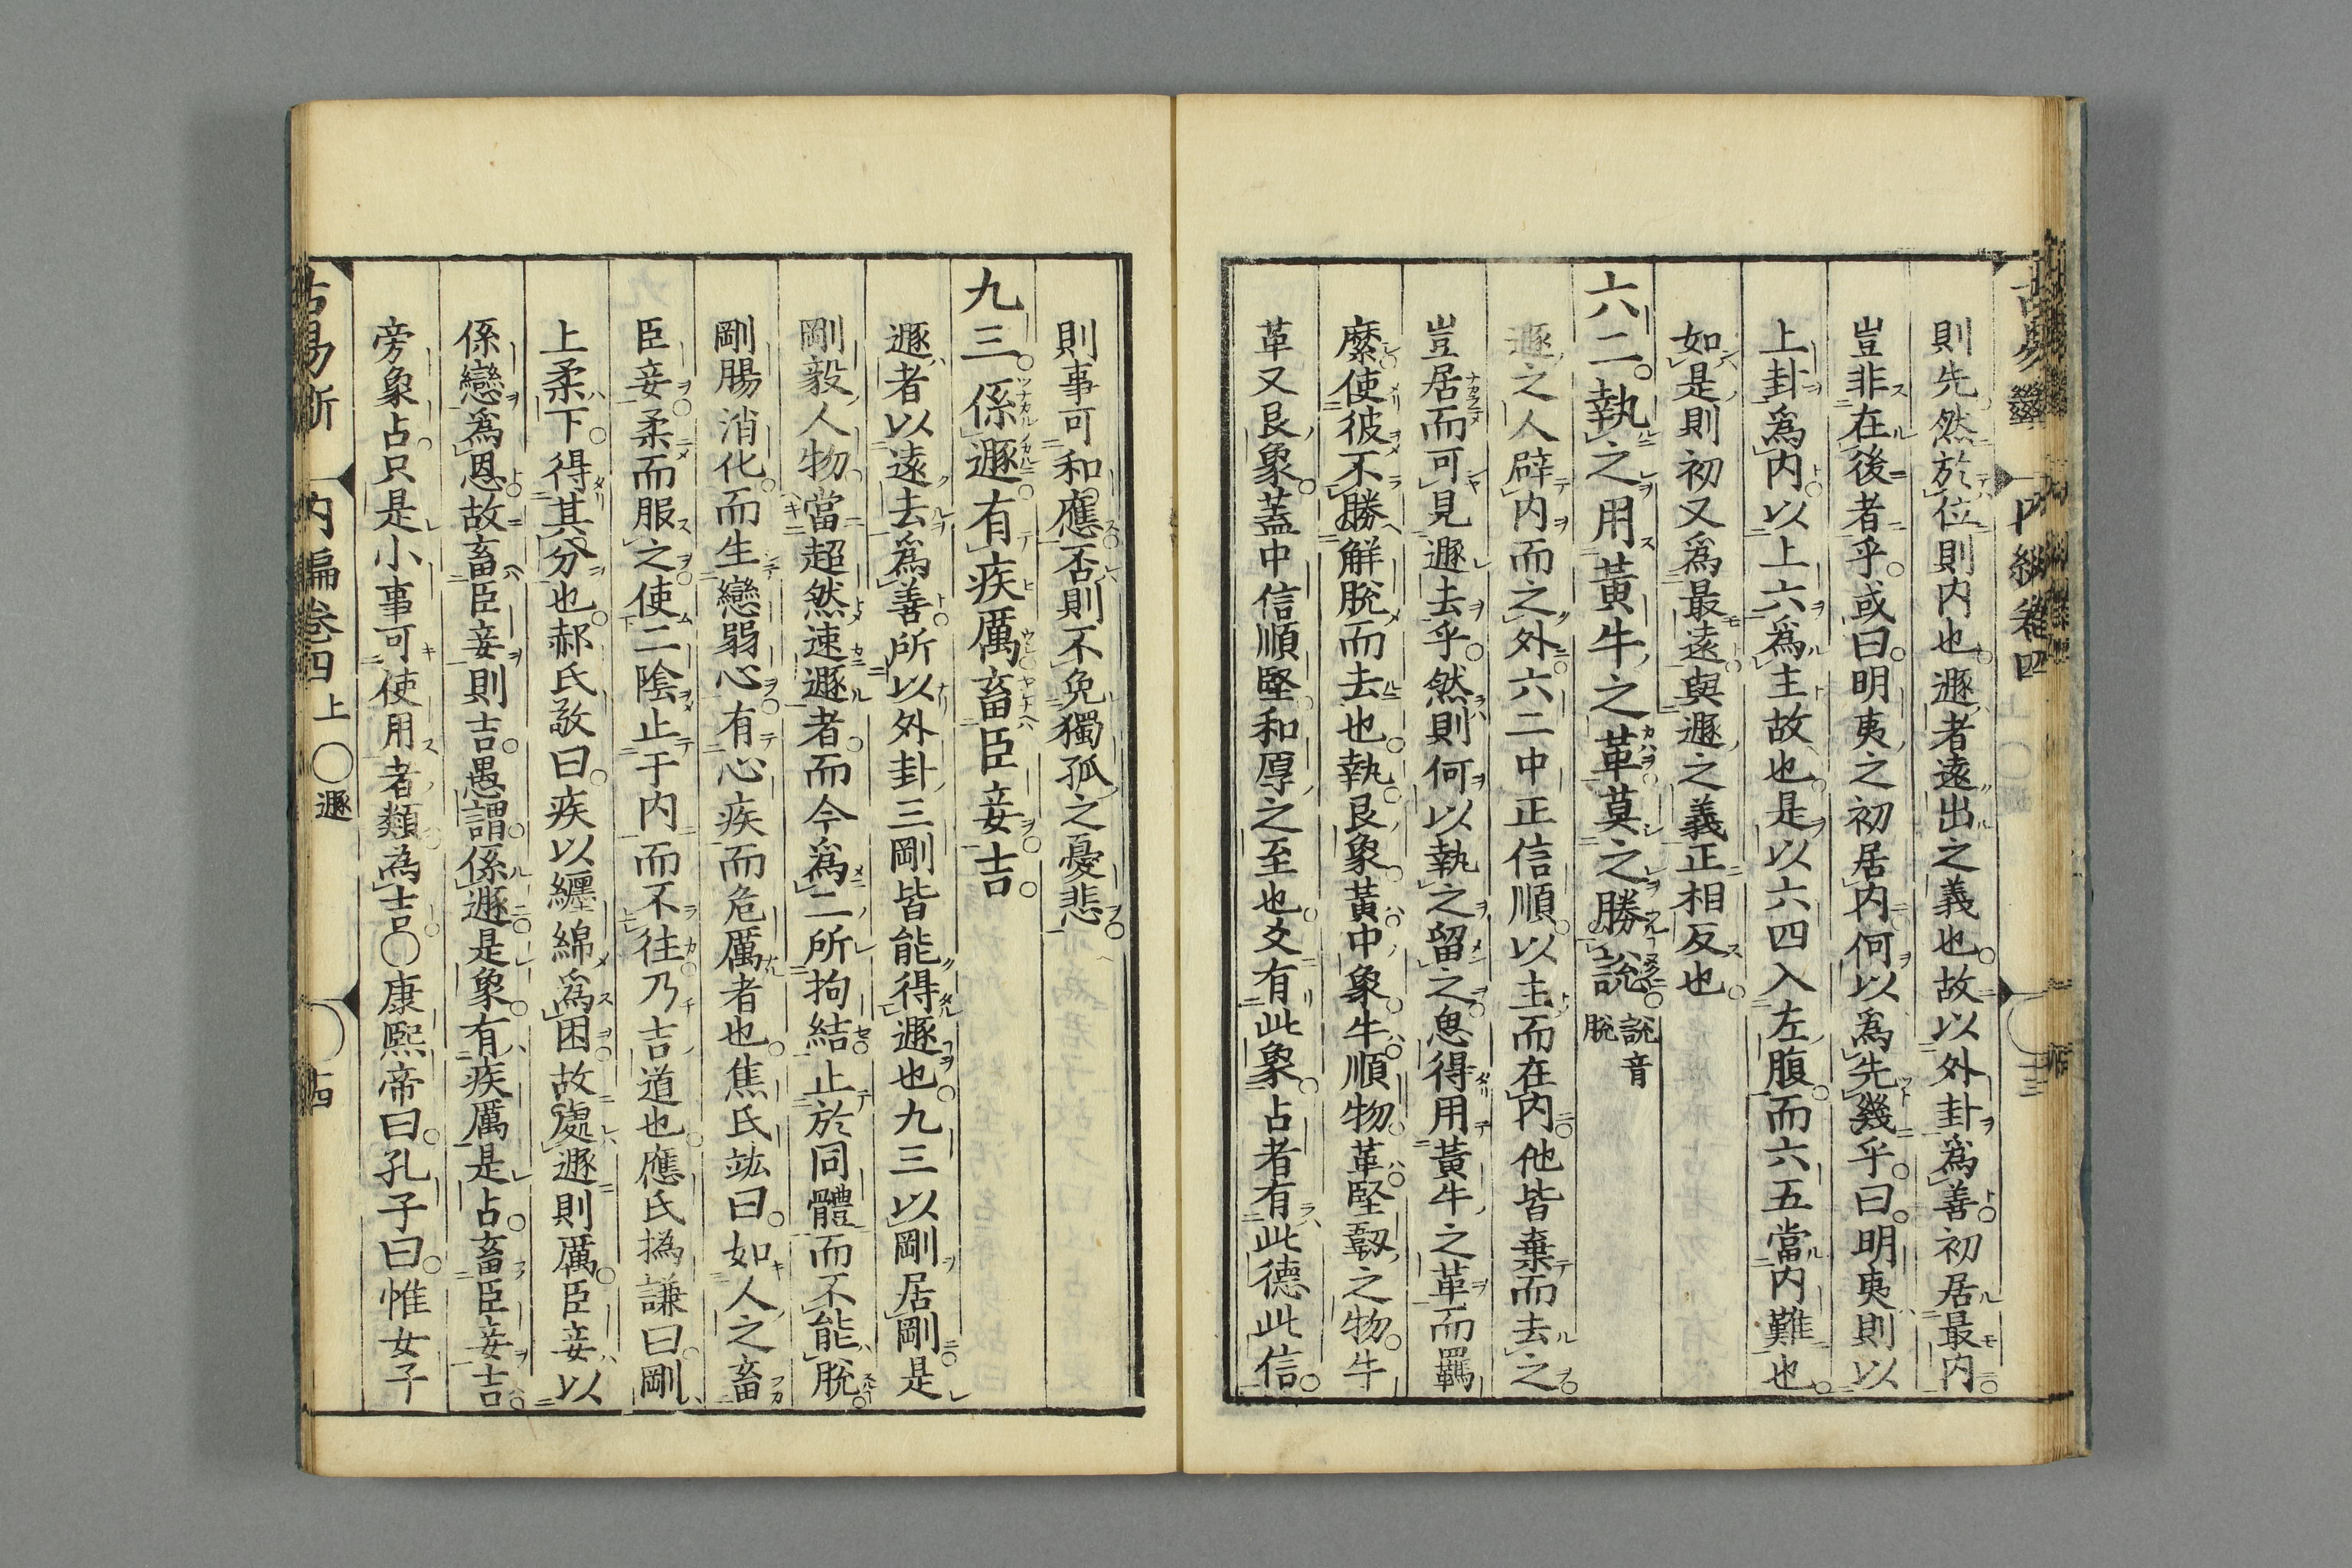 則先然於位則内也遯者遠出之義也故以外卦爲善初居最内
豈非在後者乎或曰明夷之初居内何以爲先幾乎曰明夷則以
上卦爲内以上六爲主故也是以六四入左腹而六五當内難也
如是則初又爲最遠與遯之義正相反也
六二執之用黃牛之革莫之勝說 說音脫
遯之人辟内而之外六二中正信順以主而在内他皆棄而去之
豈居而可見遯去乎然則何以執之留之思得用黃牛之革而羈
縻使彼不勝解脫而去也執艮象黃中象牛順物革堅韌之物牛
革又艮象蓋中信順堅和厚之至也爻有此象占者有此德此信
則事可和應否則不免獨孤之憂悲
九三係遯有疾厲畜臣妾吉
遯者以遠去爲善所以外卦三剛皆能得遯也九三以剛居剛是
剛毅人物當超然速遯者而今爲二所拘結止於同體而不能脫
剛腸消化而生戀弱心有心疾而危厲者也焦氏竑曰如人之畜
臣妾柔而服之使二陰止于内而不往乃吉道也應氏撝謙曰剛
上柔下得其分也郝氏敬曰疾以纏綿爲困故處遯則厲臣妾以
係戀爲恩故畜臣妾則吉愚謂係遯是象有疾厲是占畜臣妾吉
旁象占只是小事可使用者類為吉〇康熙帝曰孔子曰惟女子
内編卷四 上〇遯